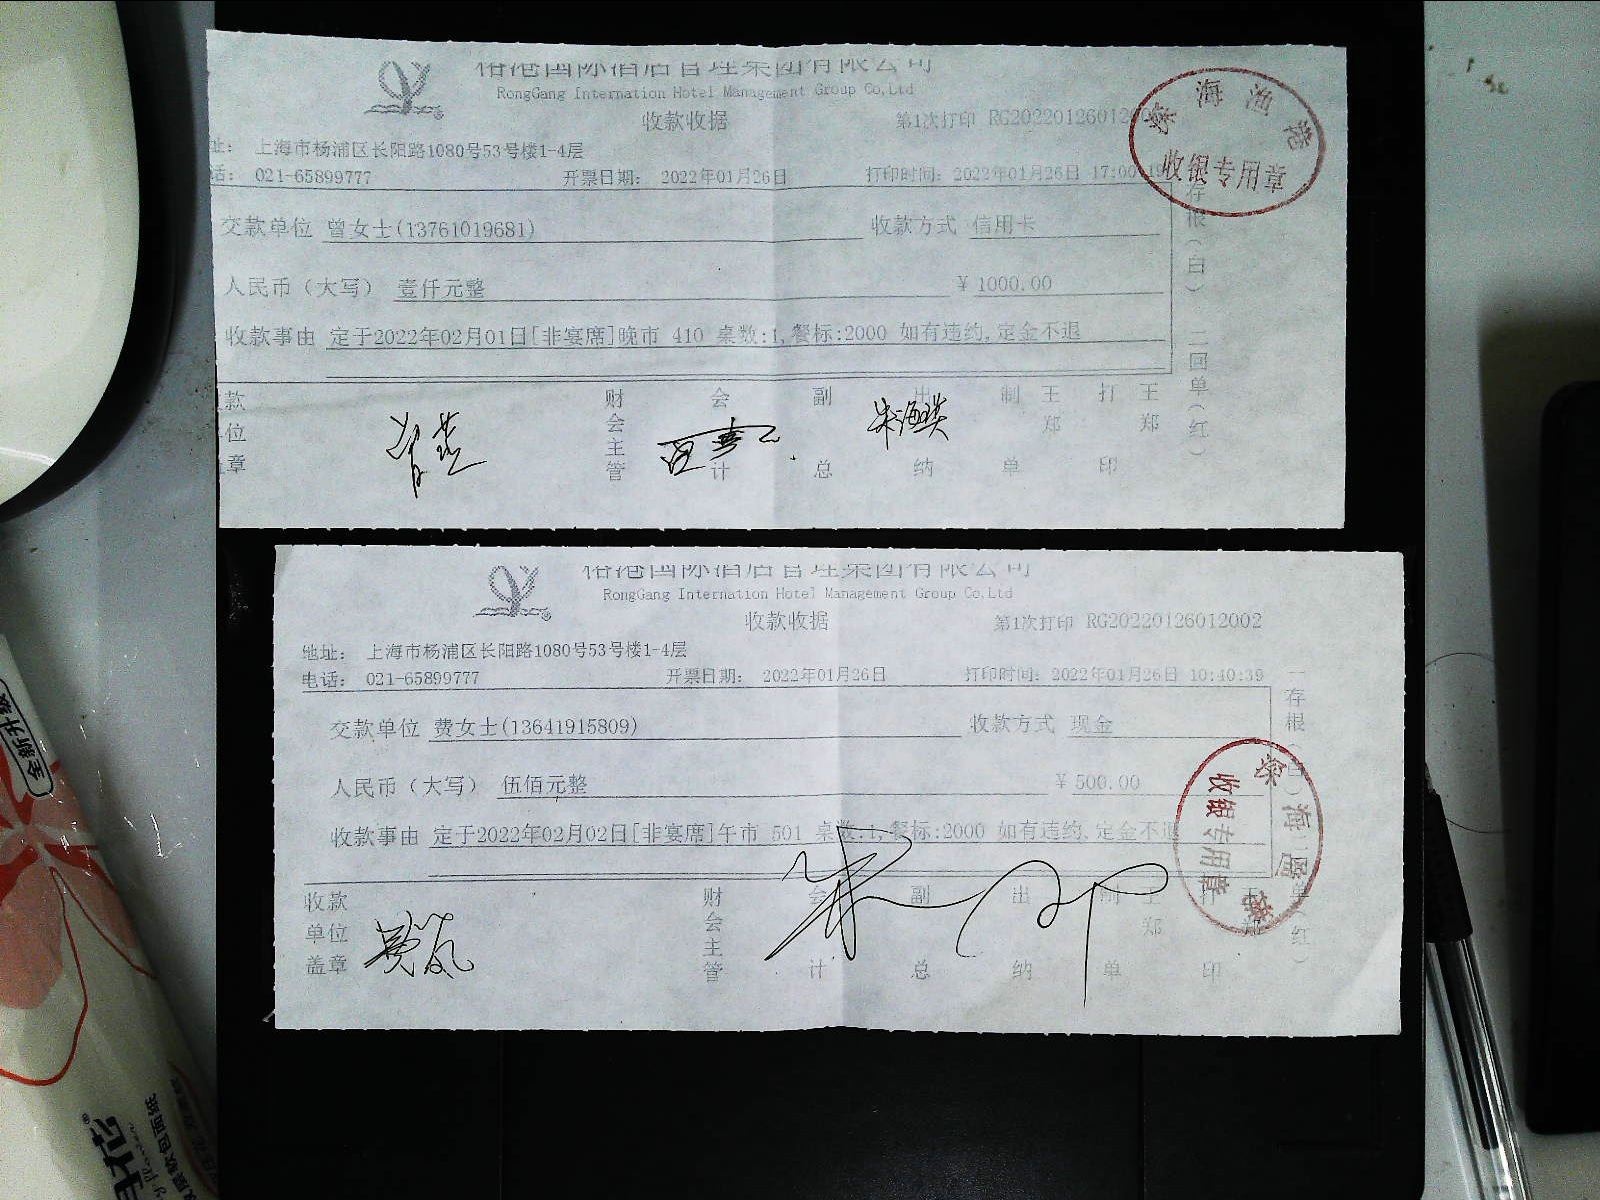 榕港国际酒店管理集团有限公司
RongGang Internation Hotel Management Group Co,Ltd
收款收据
第1次打印 RG20220126012
址： 上海市杨浦区长阳路1080号53号楼1-4层
话： 021-65899777 开票日期： 2022年01月26日 打印时间：2022年01月26日 17:00:19
深海渔港
收银专用章
交款单位 曾女士(13761019681) 收款方式 信用卡
人民币（大写） 壹仟元整 ￥1000.00
收款事由 定于2022年02月01日[非宴席]晚市 410 桌数:1,餐标:2000 如有违约,定金不退
存根（白） 二回单（红）
款单位盖章 财会主管 会计 副总 出纳 制单 王郑 打印 王郑
榕港国际酒店管理集团有限公司
RongGang Internation Hotel Management Group Co,Ltd
收款收据
第1次打印 RG20220126012002
地址： 上海市杨浦区长阳路1080号53号楼1-4层
电话： 021-65899777 开票日期： 2022年01月26日 打印时间：2022年01月26日 10:40:39
交款单位 费女士(13641915809) 收款方式 现金
人民币（大写） 伍佰元整 ￥500.00
收款事由 定于2022年02月02日[非宴席]午市 501 桌数:1,餐标:2000 如有违约,定金不退
一存根（白）二回单（红）
深海渔港
收银专用章
收款单位盖章 财会主管 会计 副总 出纳 制单 王郑 打印 王郑
全新升级